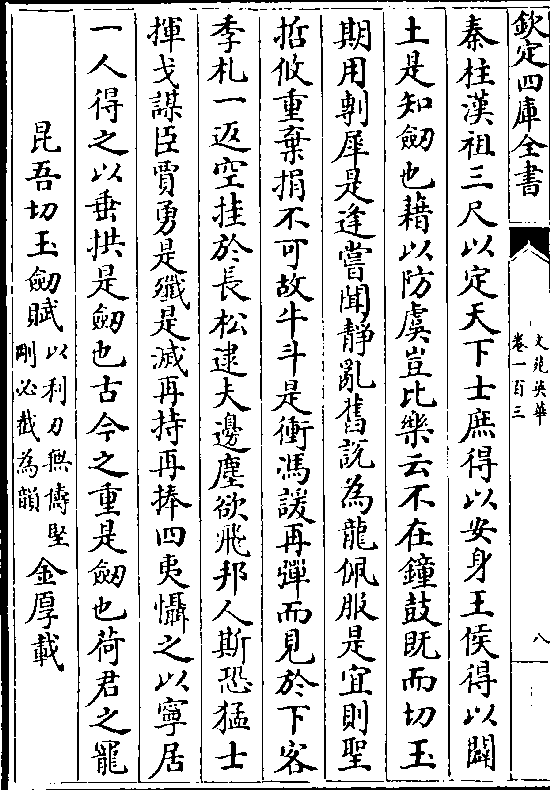 欽定四庫全書
文苑英華
卷一百三
八
秦柱漢祖三尺以定天下士庶得以安身王侯得以闢
土是知劒也藉以防虞豈比樂云不在鐘鼓既而切玉
期用剸犀是逢嘗聞靜亂舊説為龍佩服是宜則聖
哲攸重棄捐不可故牛斗是衝馮諼再彈而見於下客
季札一返空挂於長松逮夫邊塵欲飛邦人斯恐猛士
揮戈謀臣賈勇是殱是滅再持再捧四夷懾之以寧居
一人得之以垂拱是劒也古今之重是劒也荷君之寵
昆吾切玉劒賦以利刀無儔堅剛必截為韻 金厚載